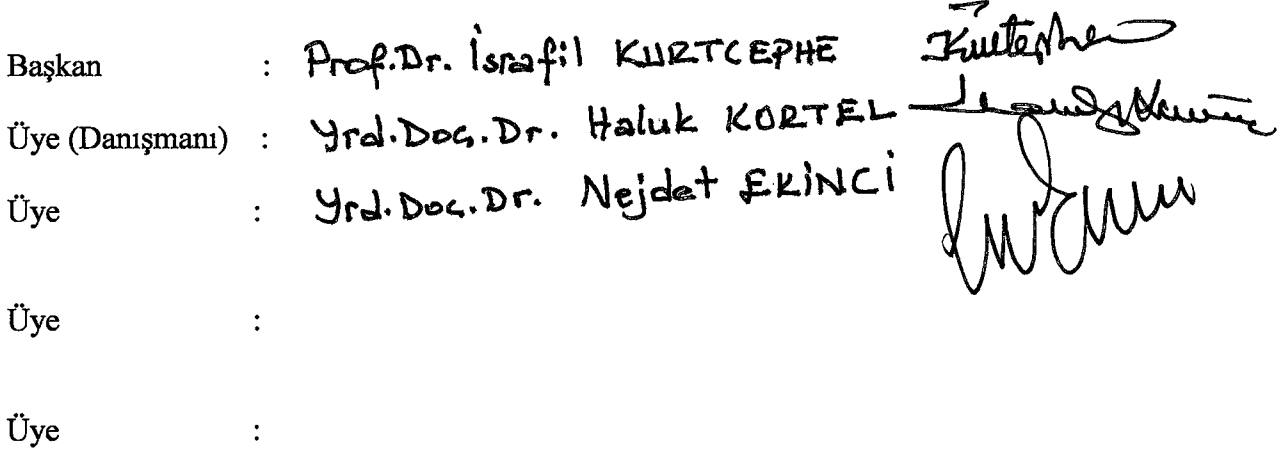 Başkan : Prof.Dr. İsrafil KURTCEPHE
Üye (Danışmanı) : Yrd.Doç.Dr. Haluk KORTEL
Üye : Yrd.Doç.Dr. Nejdet EKİNCİ
Üye :
Üye :